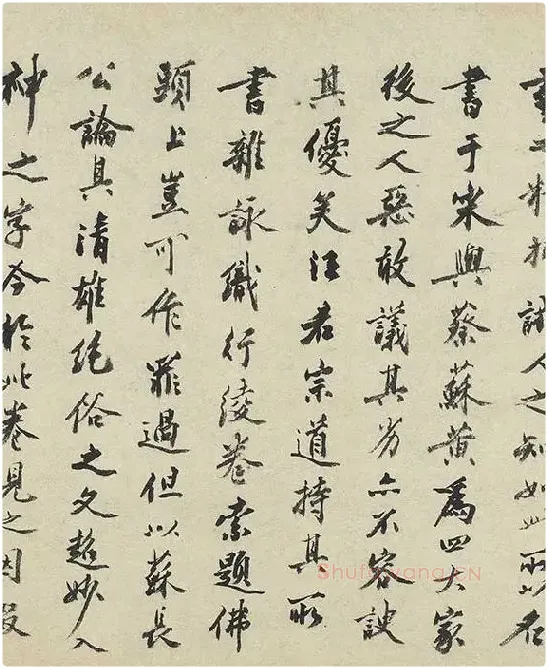 藝之精抑試人之知如此所以名
書于宋與蔡蘇黃為四大家
後之人惡敢議其劣亦不容諛
其優矣汪君宗道持其所
書雜詠織行綾卷索題佛
頭上豈可作罪過但以蘇長
公論其清雄絕俗之文超妙入
神之字今於此卷見之因